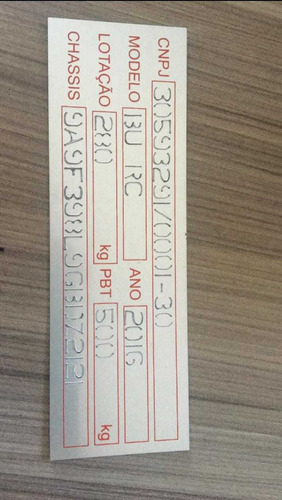 CNPJ 30593291/0001-30
MODELO BU RC ANO 2016
LOTAÇÃO 280 kg PBT 500 kg
CHASSIS